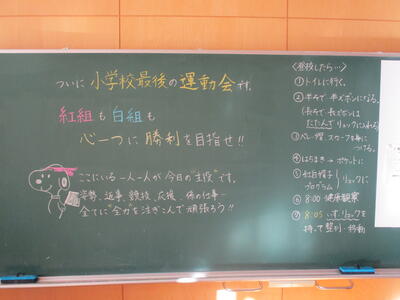 ついに 小学校最後の運動会です。
紅組も白組も
心一つに勝利を目指せ!!
ここにいる一人一人が今日の"主役"です。
姿勢、返事、競技、応援、係の仕事…
全てに"全力"を注ぎこんで頑張ろう!!
〈登校したら…〉
①トイレに行く。
②半そで 半ズボンになる。
(長そで 長ズボンは
たたんでリュックに入れる)
④はちまき→ポケットに
⑤紅白帽子
プログラム
リュックに
⑥8:00 健康観察
⑦8:05 いす、リュックを
持って整列・移動